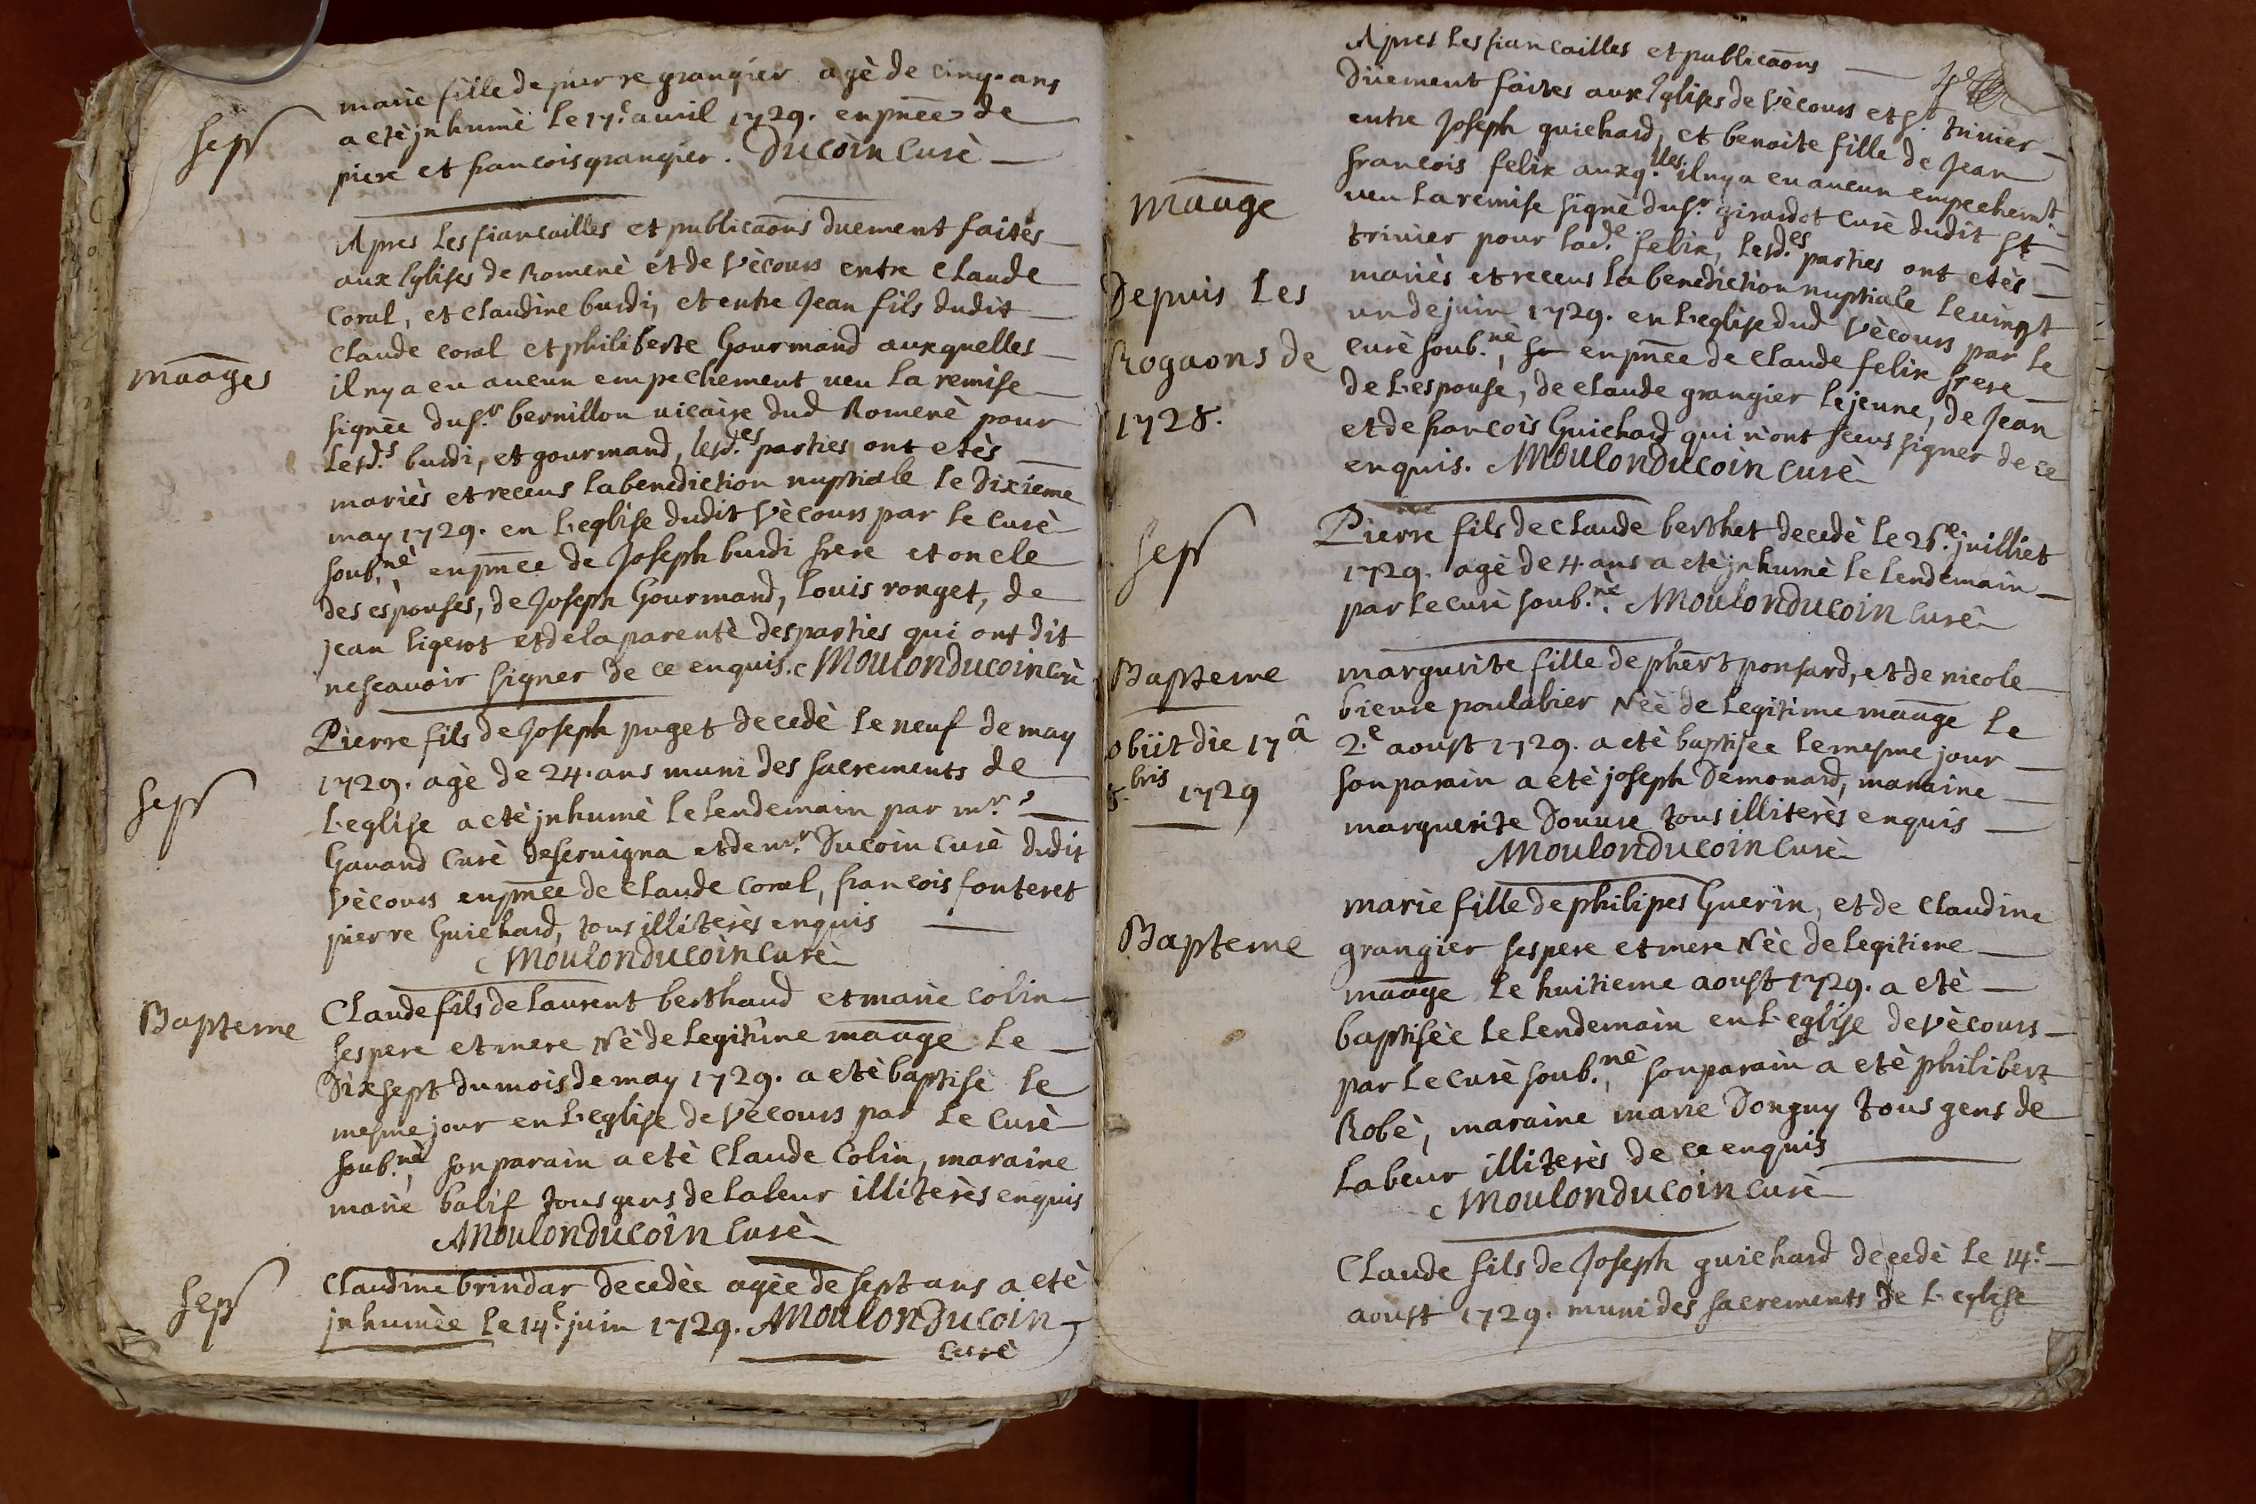 marie fille de pierre grangier agè de cinq. ans
sepr
a etè jnhumè Le 17.e auril 1729. en pñce de
piere et francois grangier. Ducoin Curè
Apres Les fiancailles et publicaõns duement faites
aux Eglises de Romenè et de Vècours entre Claude
Coral, et Claudine burdi, et entre Jean fils dudit
Claude coral et philiberte Gourmand auxquelles
mãages
il ny a eu aucun empechement ueu La remise
signèe du sr. bernillon uicaire dud Romenè pour
Lesd.s burdi, et gourmand, lesd.es parties ont etès
mariès et receus la benediction nuptiale le Dixieme
may 1729. en L'eglise dudit Vècours par le Curè
soub.nè, en pñce de Joseph burdi frere et oncle
des espouses, de Joseph Gourmand, Louis ronget, de
jean ligerot et de la parentè des parties qui ont dit
ne scauoir signer de ce enquis. Moulonducoin Curè
Pierre fils de Joseph puget decedè Le neuf de may
sepr
1729. agè de 24. ans muni des sacrements de
L'eglise a etè jnhumè le lendemain par mr.s
Gauand Curè deseruigna et de mr. Ducoin Curè dudit
Vècours en pñce de Claude Coral, francois fonteret
pierre Guichard, tous illiterès enquis
Moulonducoin Curè
Claude fils de Laurent berthaud et marie Colin
Bapteme
ses pere et mere Nè de legitime mãage Le
Dix sept du mois de may 1729. a etè baptisè le
mesme jour en L'eglise de Vècours par Le Curè
soub.nè, son parain a etè Claude Colin, maraine
marie balif tous gens de labeur illiterès enquis
Moulonducoin Curè
Claudine brindar decedèe agèe de sept ans a etè
sepr
jnhumèe Le 14.e juin 1729. Moulonducoin
Curè
Apres Les fiancailles et publicaõns
Düement faites aux Eglises de Vècours et st. triuier
entre Joseph guichard, et benoite fille de Jean
francois felix auxq.lles il ny a eu aucun empechemt.
mãage
ueu La remise signè du sr. girardot Curè dudit st
triuier pour lad.e felix, lesd.es parties ont etès
mariès et receus la benediction nuptiale le uingt
Depuis Les
un de juin 1729. en L'eglise dud Vècours par le
Rogaons de
curè soub.nè, en pñce de Claude felix frere
1728.
de L'espouse, de Claude grangier lejeune, de Jean
et de francois Guichard qui n'ont sceus signer de ce
enquis. Moulonducoin Curè
Pierre fils de Claude berthet decedè le 26.e juilliet
sepr
1729. agè de 4. ans a etè jnhumè le lendemain
par Le Curè soub.nè. Moulonducoin Curè
Bapteme
margurite fille de phert ponsard, et de nicole
bieure poulalier Nèè de legitime mãage le
obiit die 17â
2.e aoust 1729. a etè baptisèe le mesme jour
8.bris 1729
son parain a etè joseph Demonard, maraine
marguerite Douure tous illiterès enquis
Moulonducoin Curè
marie fille de philipes Guerin, et de Claudine
Bapteme
grangier ses pere et mere Nèè de legitime
mãage le huitieme aoust 1729. a etè
baptisèe le lendemain en L'eglise de Vècours
par Le Curè soub.nè, son parain a etè philibert
Robè, maraine marie Donguy tous gens de
labeur illiterès de ce enquis
Moulonducoin Curè
Claude fils de Joseph guichard decedè le 14.e
aoust 1729. muni des sacrements de L'eglise